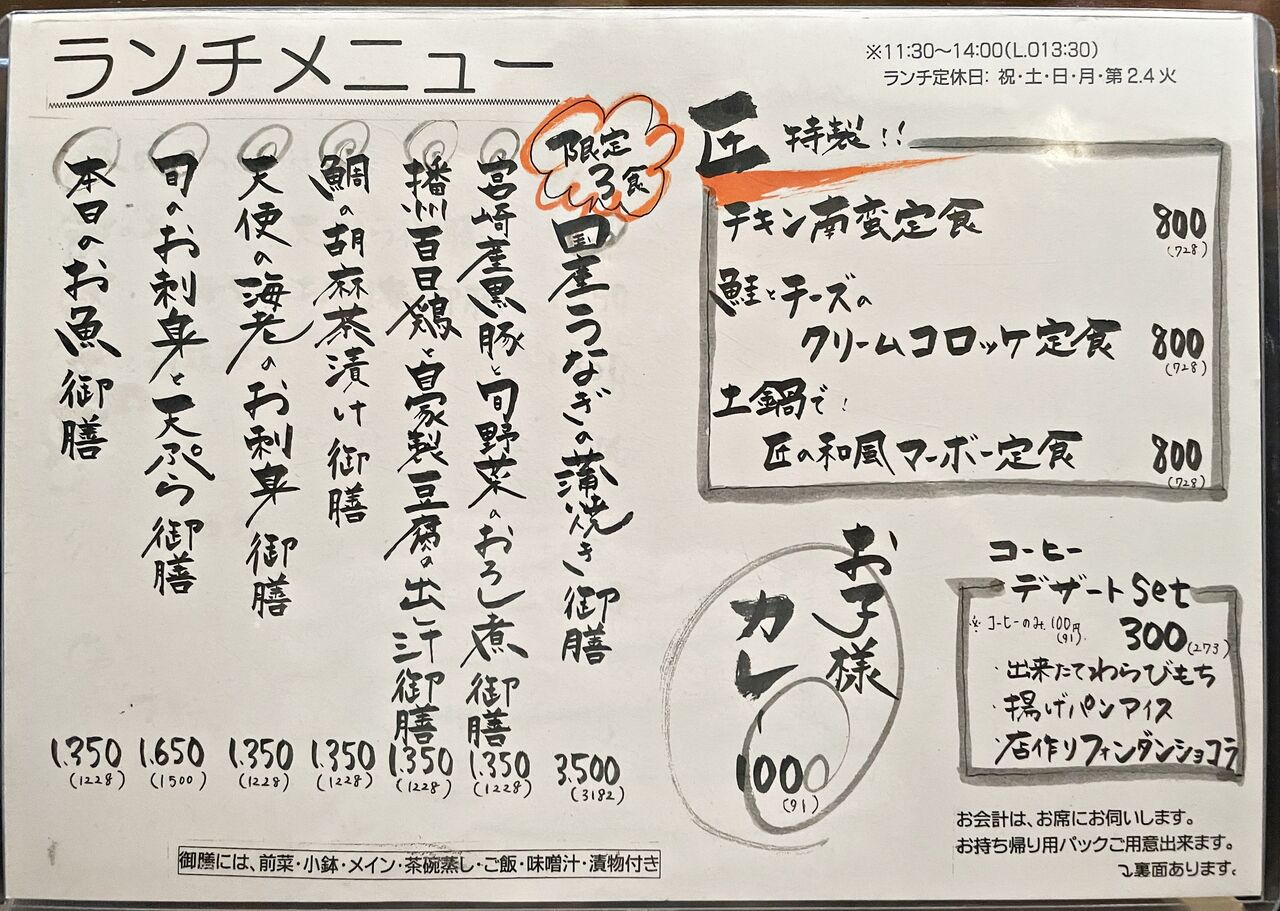 ランチメニュー
※11:30～14:00(L.O13:30)
ランチ定休日: 祝・土・日・月・第2.4火
限定
3食
国産うなぎの蒲焼き御膳
3.500
(3182)
宮崎産黒豚と旬野菜のおろし煮御膳
1.350
(1228)
播州百日鶏と自家製豆腐の出汁御膳
1.350
(1228)
鯛の胡麻茶漬け御膳
1.350
(1228)
天使の海老のお刺身御膳
1.350
(1228)
旬のお刺身と天ぷら御膳
1.650
(1500)
本日のお魚御膳
1.350
(1228)
御膳には、前菜・小鉢・メイン・茶碗蒸し・ご飯・味噌汁・漬物付き
匠 特製!!
チキン南蛮定食 800
(728)
鮭とチーズの
クリームコロッケ定食 800
(728)
土鍋で!
匠の和風マーボー定食 800
(728)
お子様
カレー
100
(91)
コーヒー
デザートset
※コーヒーのみ100円
(91)
300(273)
・出来たてわらびもち
・揚げパンアイス
・店作りフォンダンショコラ
お会計は、お席にお伺いします。
お持ち帰り用パックご用意出来ます。
裏面あります。